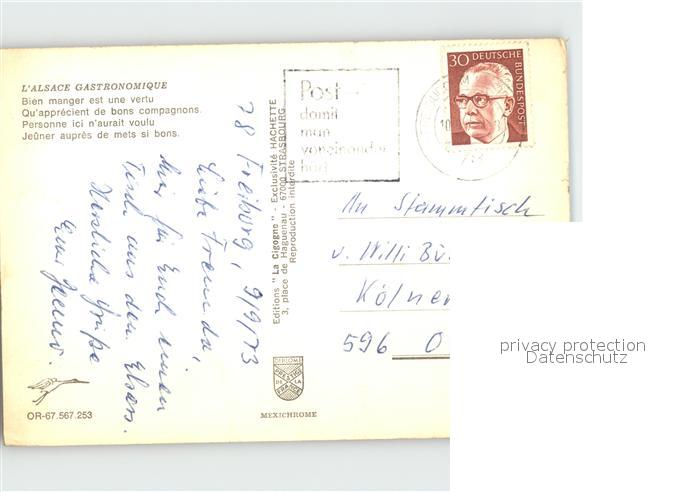 L'ALSACE GASTRONOMIQUE
Bien manger est une vertu
Qu'apprécient de bons compagnons.
Personne ici n'aurait voulu
Jeûner auprès de mets si bons.
78 Freiburg, 9/9/73
Liebe Freunde,
hier für Euch einen
Tisch aus dem Elsass.
Herzliche Grüße
Euer
OR-67.567.253
Editions "La Cigogne" - Exclusivité HACHETTE
3, place de Haguenau - 67000 STRASBOURG
Reproduction interdite
DIPLOME
PRESTIGE
DE LA
FRANCE
MEXICHROME
Post -
damit
man
voneinander
hört
30 DEUTSCHE
BUNDESPOST
An Stammtisch
v. Willi
Kölner
596 O
privacy protection
Datenschutz